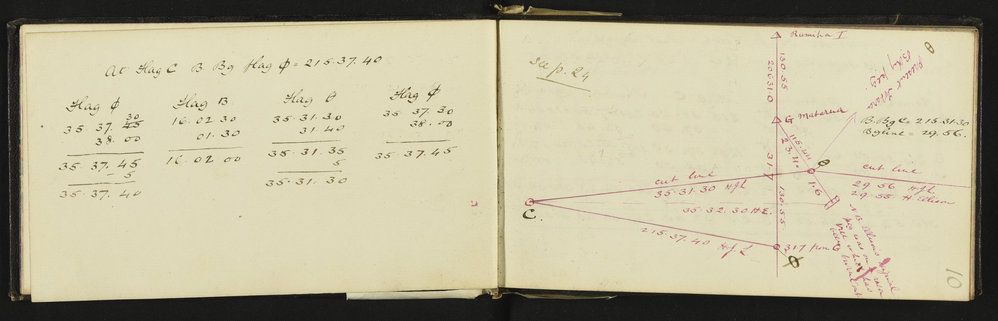 At Flag C B. Bg flag ϕ = 215.37.40
Flag ϕ
30
35. 37. 45
38. 00
35. 37. 45
- 5
35. 37. 40
Flag B
16. 02 30
01. 30
16. 02 00
Flag θ
35. 31. 30
31 40
35. 31. 35
5
35. 31. 30
Flag ϕ
35 37. 30
38. 00
35. 37. 45
see p. 24
I
130.55
20631.0
G Materua
23.
B.Bg C = 215.31.30
Bg line = 29.56.
θ
θ
cut line
35.31.30 Hfl
35.32.30 H.E.
317
130.55
1.6
cut line
29 56 Hfl
29.55 H
C.
215.37.40 Hfl
317 from G
ϕ
N.B.
peg was
10